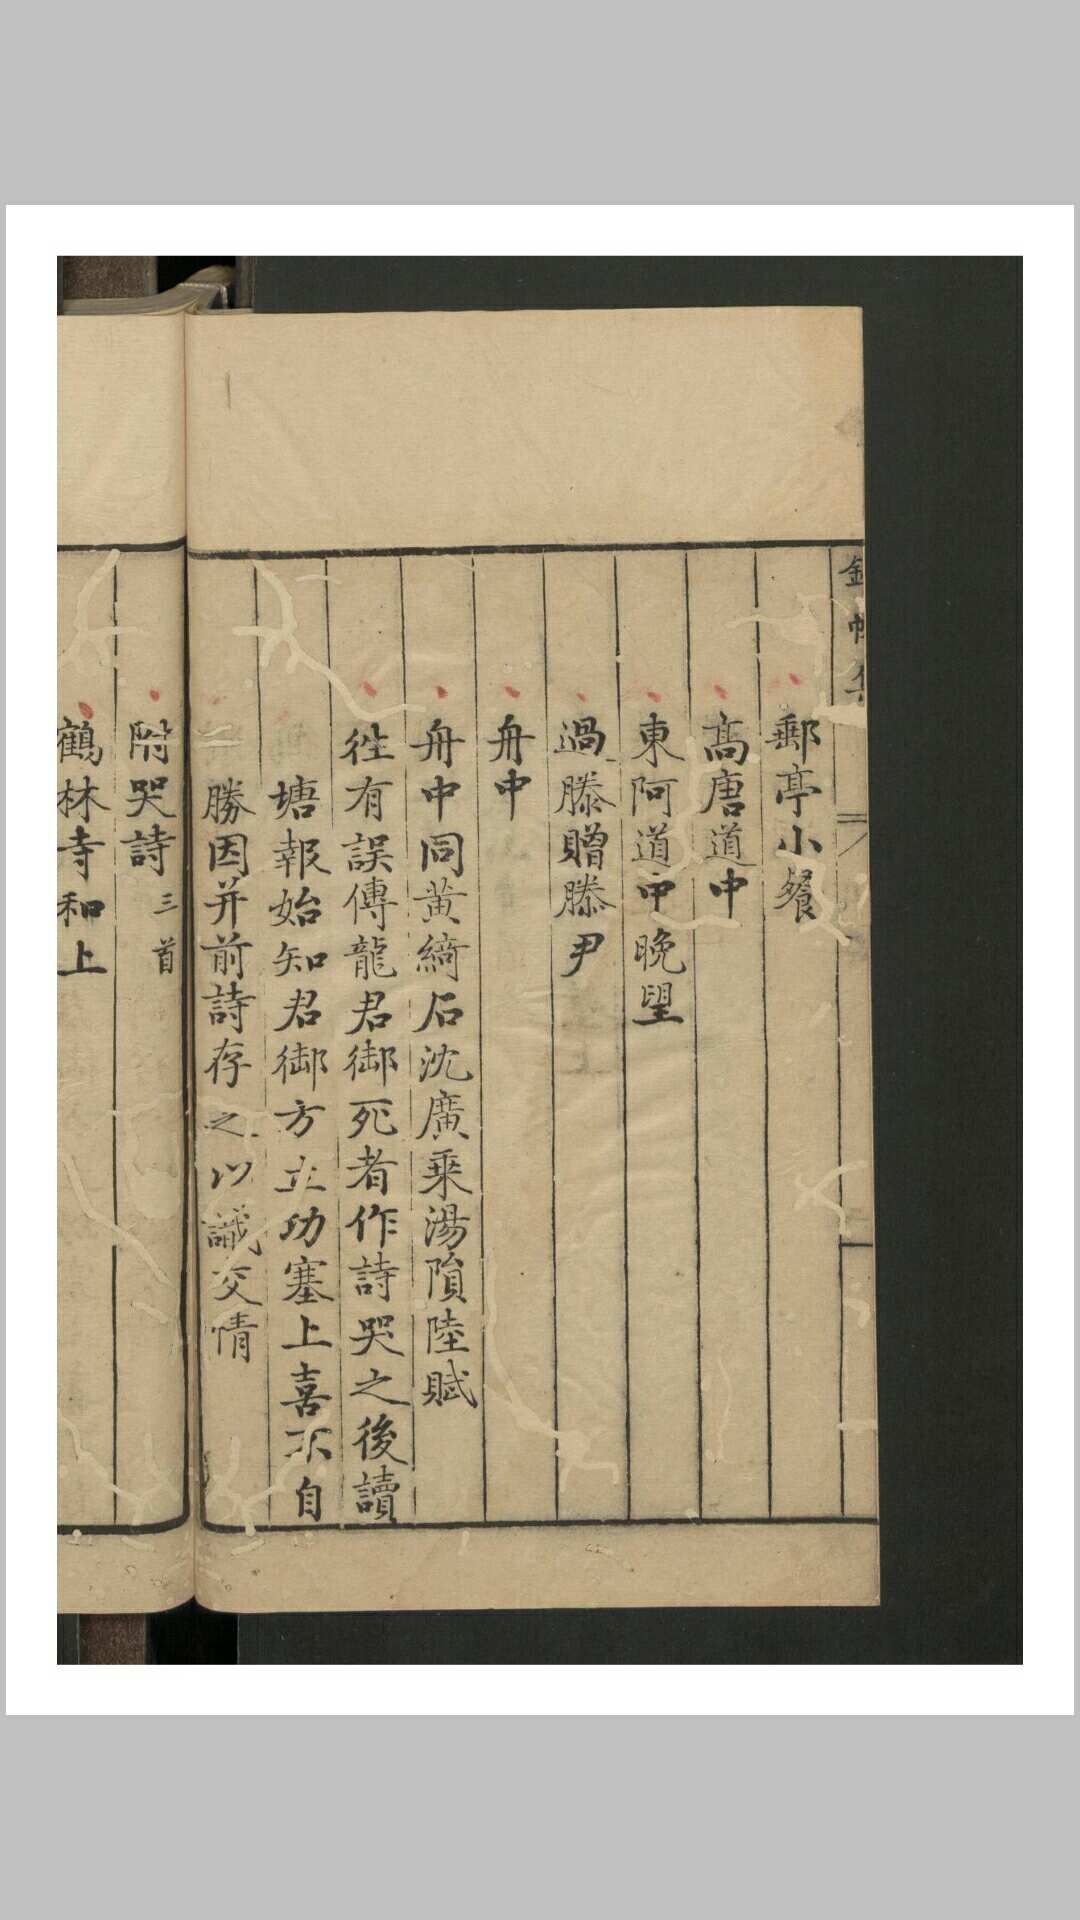 郵亭小餐
高唐道中
東阿道中晚望
過滕贈滕尹
舟中
舟中同黄綺石沈廣乘湯隕陸賦
徃有誤傳龍君御死者作詩哭之後讀
塘報始知君御方立功塞上喜不自
勝因并前詩存之以識交情
附哭詩三首
鶴林寺和上